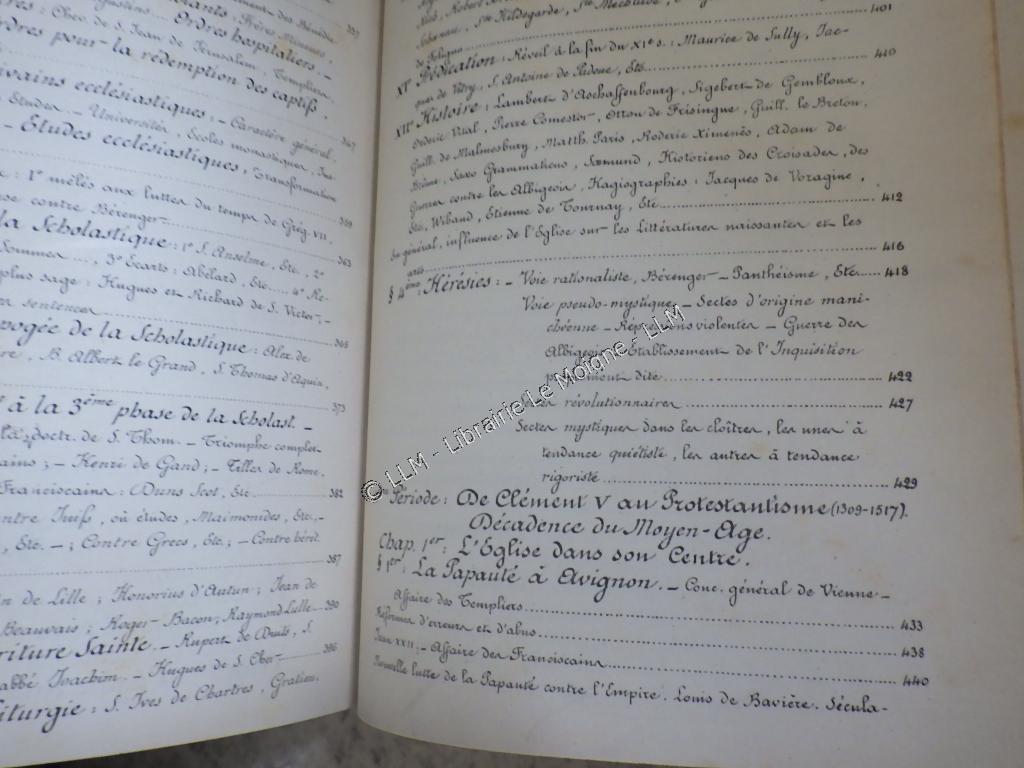 Ordres hospitaliers. -
rres : Chev. de S. Jean de Jérusalem, Templiers,
rdres pour la rédemption des captifs,
ivains ecclésiastiques, - Caractère général.
Études. - Universités, Écoles monastiques,
- Études ecclésiastiques, transformation
: 1° mêlés aux luttes du temps de Grég. VII,
se contre Bérenger 359
la Scholastique : 1° S. Anselme, Etc, 2° 363
Sommes ...., 3° Écarts : Abélard, Etc.... 4° Re-
plus sage : Hugues et Richard de S. Victor ; -
sentences 365
pogée de la Scholastique : Alex. de
B. Albert le Grand, S. Thomas d'Aquin,
373
à la 3ème phase de la Scholast. -
doctr. de S. Thom. - Triomphe complet
ains ; - Henri de Gand ; - Gilles de Rome,
Franciscains : Duns Scot, Etc 382
ntre Juifs, où études, Maimonides, Etc, -
, Etc. - ; Contre Grecs, Etc ; - Contre hérét.
387
in de Lille ; Honorius d'Autun ; Jean de
Beauvais ; Roger-Bacon ; Raymond Lulle 390
riture Sainte. - Rupert de Duits, S.
abbé Joachim. - Hugues de S. Cher 396
iturgie : S. Yves de Chartres, Gratien,
Ste Hildegarde, Ste Mechtilde,
401
XI° Prédication : Réveil à la fin du XIe s. : Maurice de Sully, Jac-
ques de Vitry, S. Antoine de Padoue, Etc 410
XII° Histoire : Lambert d'Aschaffenbourg, Sigebert de Gembloux,
Orderic Vital, Pierre Comestor, Otton de Frisingue, Guill. le Breton,
Guill. de Malmesbury, Matth. Paris, Roderic Ximenès, Adam de
Brême, Saxo Grammaticus, Sæmund, Historiens des Croisades, des
Guerres contre les Albigeois, Hagiographies : Jacques de Voragine,
Etc, Wibaud, Etienne de Tournay, Etc 412
En général, influence de l'Église sur les Littératures naissantes et les
arts 416
§ 4ème : Hérésies : - Voie rationaliste, Bérenger - Panthéisme, Etc 418
Voie pseudo-mystique - Sectes d'origine mani-
chéenne - Répressions violentes - Guerre des
Albigeois - Établissement de l'Inquisition
proprement dite 422
Sectes révolutionnaires 427
Sectes mystiques dans les cloîtres, les unes à
tendance quiétiste, les autres à tendance
rigoriste 429
Période : De Clément V au Protestantisme (1309-1517).
Décadence du Moyen-Age.
Chap. 1er : L'Église dans son Centre.
§ 1er : La Papauté à Avignon. - Conc. général de Vienne -
Affaire des Templiers 433
Réforme d'erreurs et d'abus 438
Jean XXII : - Affaire des Franciscains 440
Nouvelle lutte de la Papauté contre l'Empire. Louis de Bavière. Sécula-
© LLM - Librairie Le Moigne - LLM